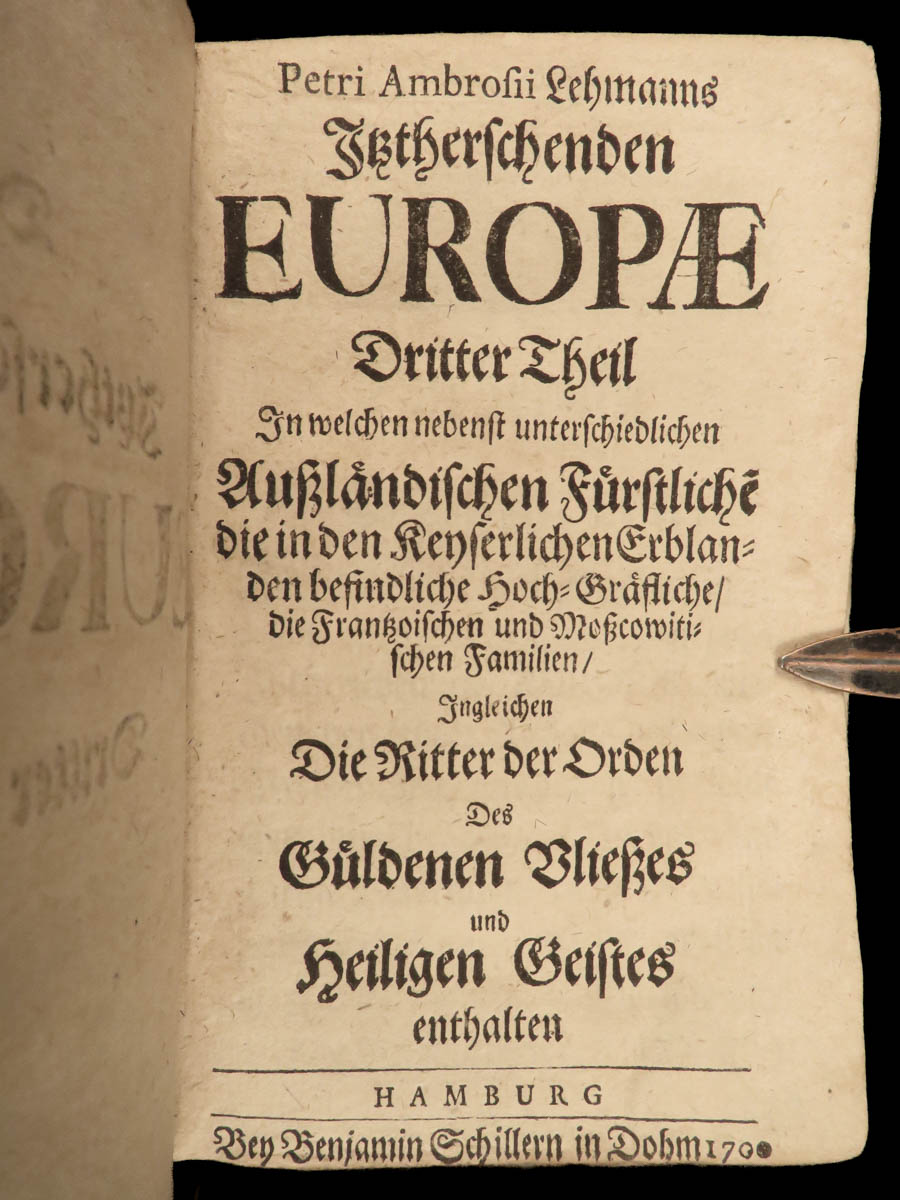 Petri Ambroſii Lehmanns
Jtztherſchenden
EUROPÆ
Dritter Theil
In welchen nebenſt unterſchiedlichen
Außlaͤndiſchen Fuͤrſtlichẽ
die in den Keyſerlichen Erblan⸗
den befindliche Hoch⸗Graͤfliche/
die Frantzoiſchen und Moßcowiti⸗
ſchen Familien/
Ingleichen
Die Ritter der Orden
Des
Guͤldenen Vließes
und
Heiligen Geiſtes
enthalten
HAMBURG
Bey Benjamin Schillern in Dohm